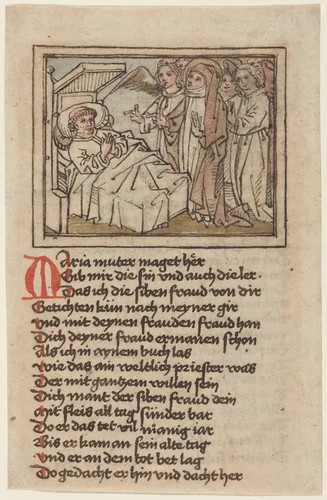 Maria muter maget her
Gib mir die sin vnd auch die ler.
Das ich die siben fraud von dir
Getichten kün nach meyner gir
Vnd mit deynen frauden fraud han
Dich deyner fraud ermanen schon
Als ich in aynem buch las
Wie das ain weltlich priester was
Der mit gantzem willen sein
Dich mant der siben fraud dein
Mit fleis all tag sunder bar
Do er das tet vil manig iar
Bis er kam an sein alte tag
Vnd er an dem tot bet lag
Do gedacht er hin vnd dacht her